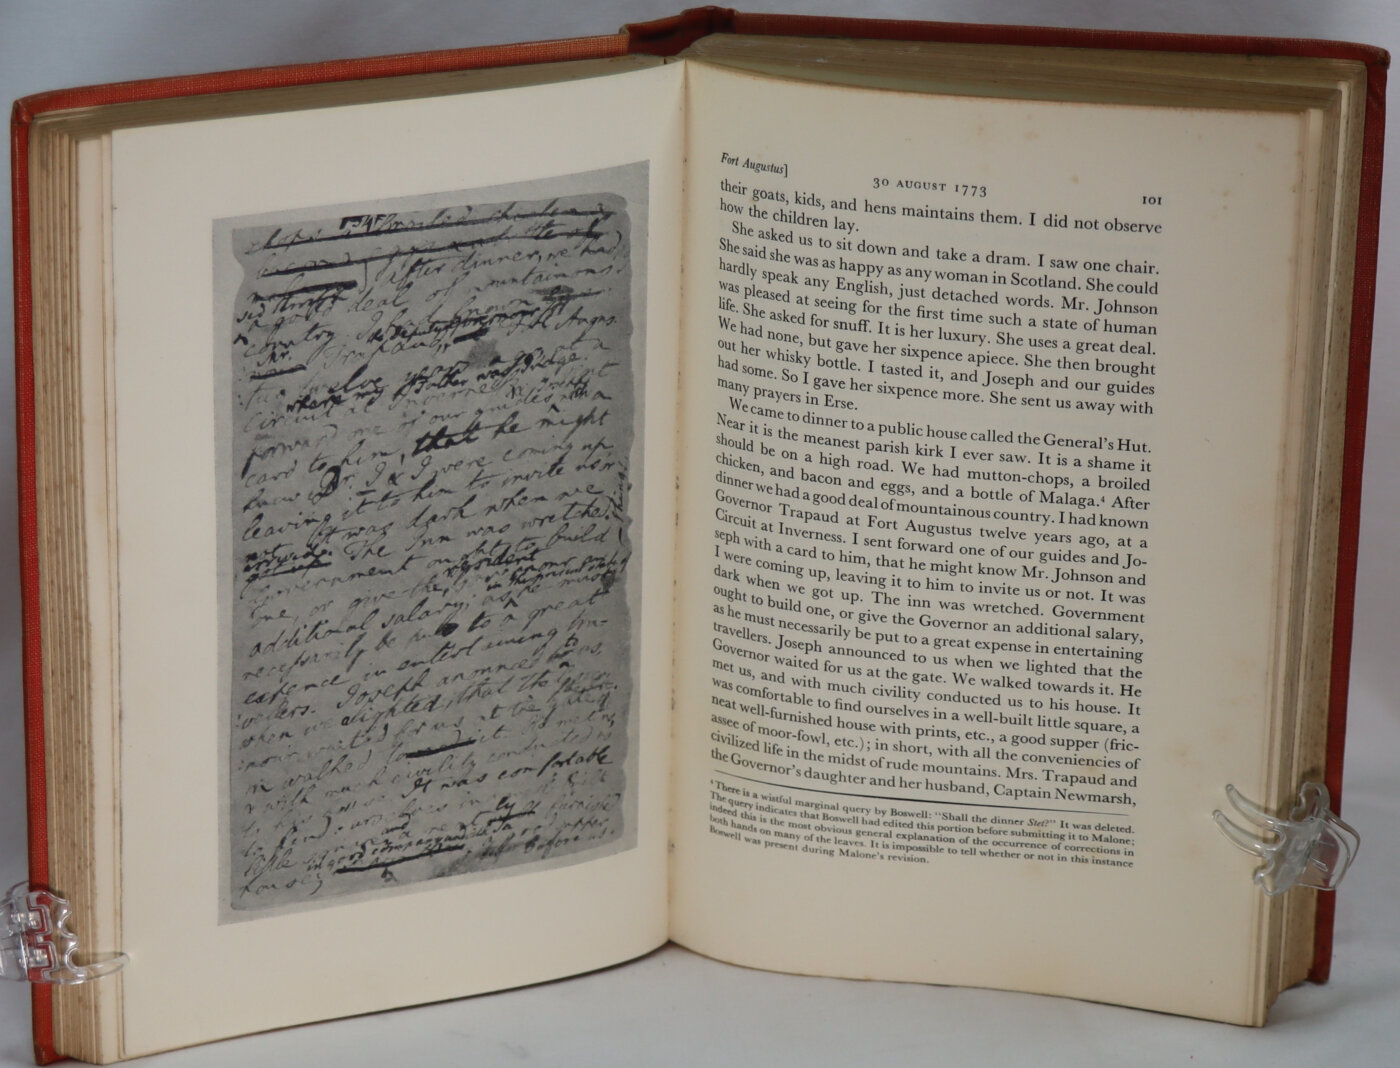 After dinner, we had
a good deal of mountainous
country. I had known
Mr. Trapaud,
twelve years ago at a
where my Father was Judge.
Circuit at Inverness. I sent
forward one of our guides with a
card to him, that he might
know Dr. J & I were coming up,
leaving it to him to invite us or
not. It was dark when we
arrived. The Inn was wretched.
Government ought to build
one, or give the resident
additional salary; as he must
necessarily be put to a great
expence in entertaining tra-
vellers. Joseph announced to us,
when we alighted, that the Gover-
nour waited for us at the gate of
walked to it. He met us,
& with much civility conducted us
to his house. It was comfortable
to find ourselves in
house,
Fort Augustus]
30 AUGUST 1773
101
their goats, kids, and hens maintains them. I did not observe
how the children lay.
She asked us to sit down and take a dram. I saw one chair.
She said she was as happy as any woman in Scotland. She could
hardly speak any English, just detached words. Mr. Johnson
was pleased at seeing for the first time such a state of human
life. She asked for snuff. It is her luxury. She uses a great deal.
We had none, but gave her sixpence apiece. She then brought
out her whisky bottle. I tasted it, and Joseph and our guides
had some. So I gave her sixpence more. She sent us away with
many prayers in Erse.
We came to dinner to a public house called the General's Hut.
Near it is the meanest parish kirk I ever saw. It is a shame it
should be on a high road. We had mutton-chops, a broiled
chicken, and bacon and eggs, and a bottle of Malaga.⁴ After
dinner we had a good deal of mountainous country. I had known
Governor Trapaud at Fort Augustus twelve years ago, at a
Circuit at Inverness. I sent forward one of our guides and Jo-
seph with a card to him, that he might know Mr. Johnson and
I were coming up, leaving it to him to invite us or not. It was
dark when we got up. The inn was wretched. Government
ought to build one, or give the Governor an additional salary,
as he must necessarily be put to a great expense in entertaining
travellers. Joseph announced to us when we lighted that the
Governor waited for us at the gate. We walked towards it. He
met us, and with much civility conducted us to his house. It
was comfortable to find ourselves in a well-built little square, a
neat well-furnished house with prints, etc., a good supper (fric-
assee of moor-fowl, etc.); in short, with all the conveniencies of
civilized life in the midst of rude mountains. Mrs. Trapaud and
the Governor's daughter and her husband, Captain Newmarsh,
⁴ There is a wistful marginal query by Boswell: "Shall the dinner Stet?" It was deleted.
The query indicates that Boswell had edited this portion before submitting it to Malone;
indeed this is the most obvious general explanation of the occurrence of corrections in
both hands on many of the leaves. It is impossible to tell whether or not in this instance
Boswell was present during Malone's revision.